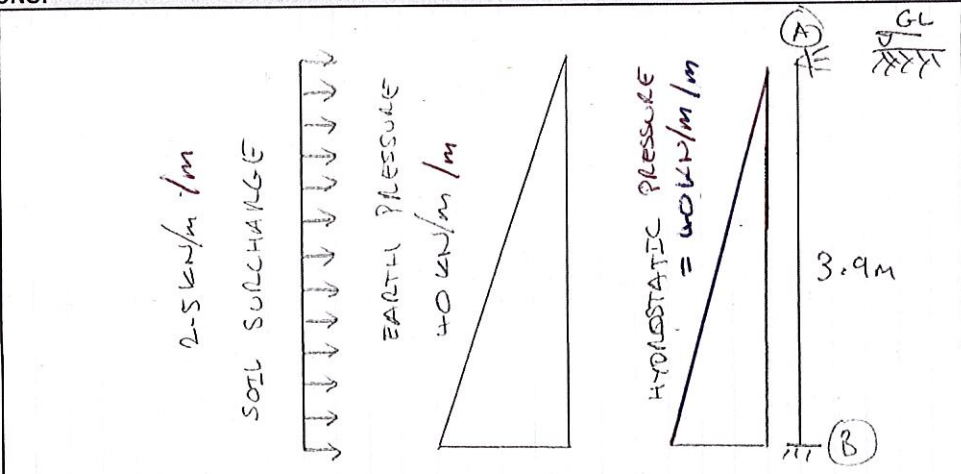 2.5 kN/m /m
SOIL SURCHARGE
EARTH PRESSURE
40 kN/m /m
HYDROSTATIC PRESSURE
= 40 kN/m/m
A
GL
3.9m
B